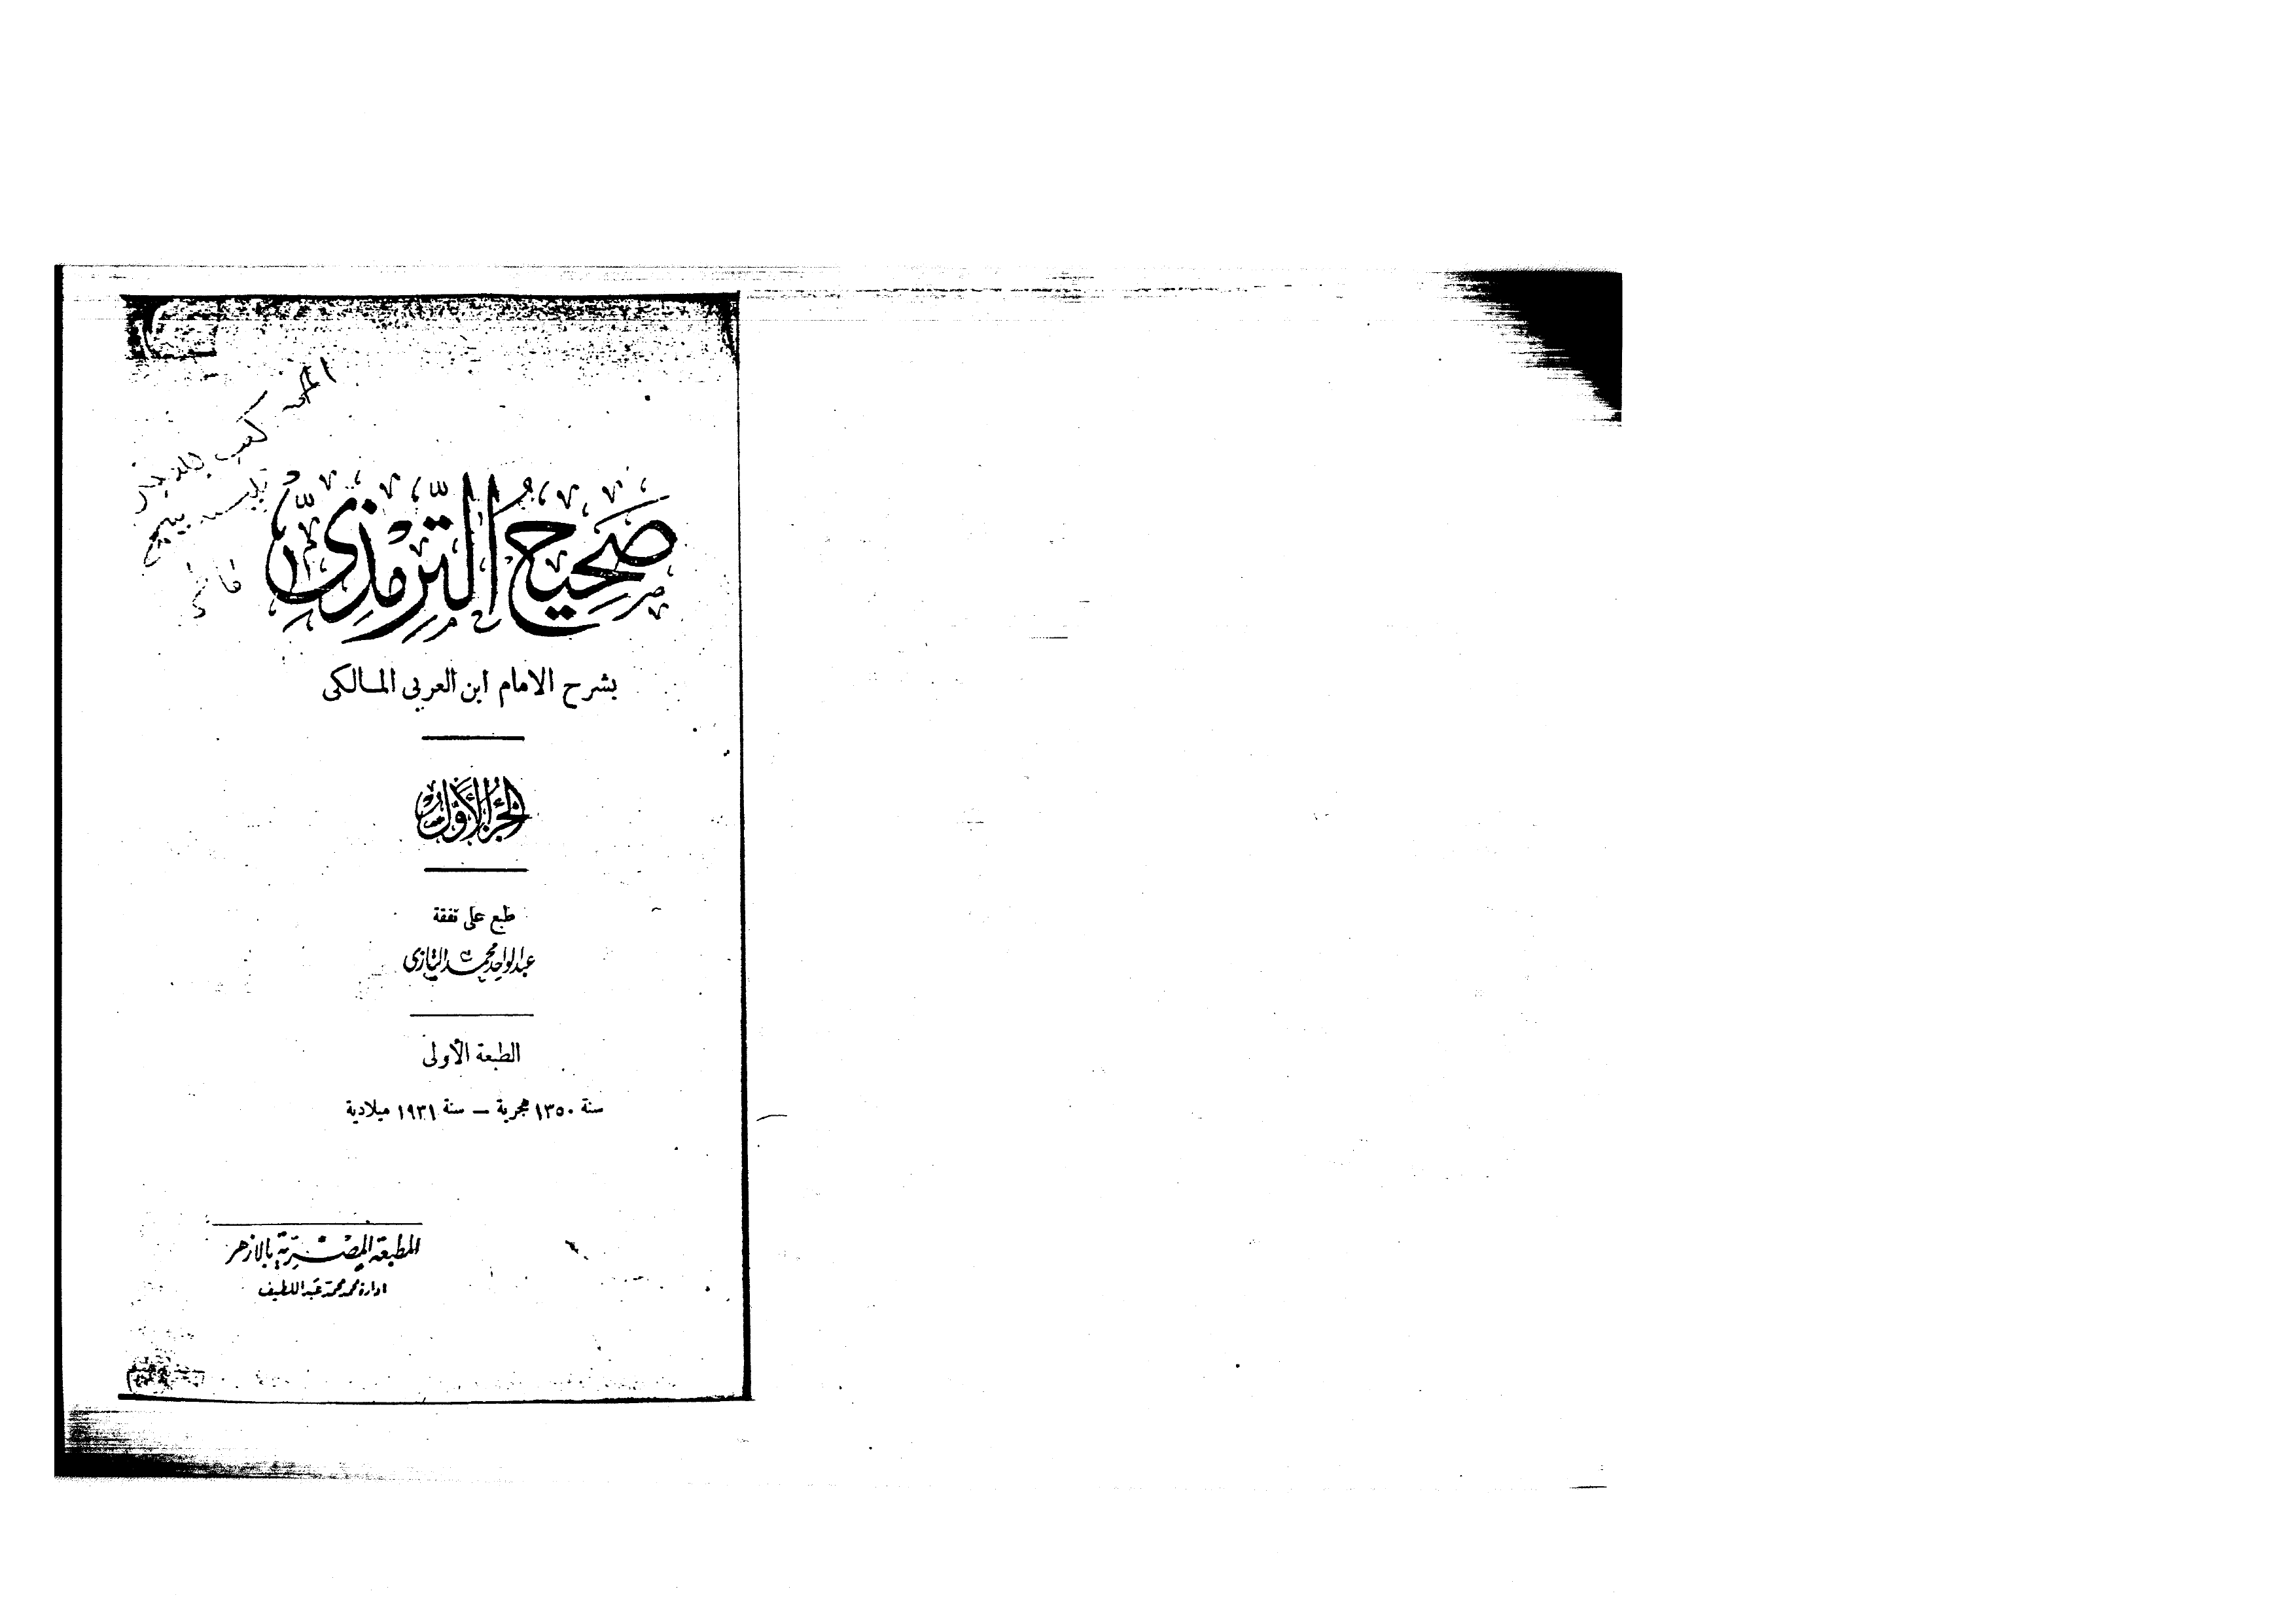 صَحِيحُ التِّرْمِذِيّ
بشرح الامام ابن العربى المالكى
الجزء الأول
طبع على نفقة
عبد الواحد محمد التازى
الطبعة الأولى
سنة ١٣٥٠ هجرية — سنة ١٩٣١ ميلادية
المطبعة المصرية بالازهر
ادارة محمد محمد عبد اللطيف